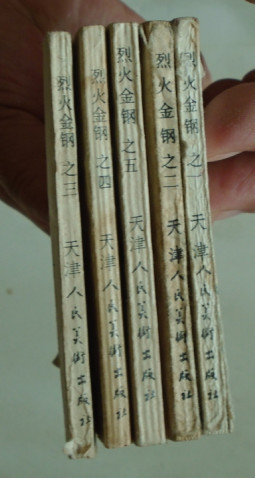 烈火金钢 之三 天津人民美術出版社
烈火金钢 之四 天津人民美術出版社
烈火金钢 之五 天津人民美術出版社
烈火金钢 之二 天津人民美術出版社
烈火金钢 之一 天津人民美術出版社